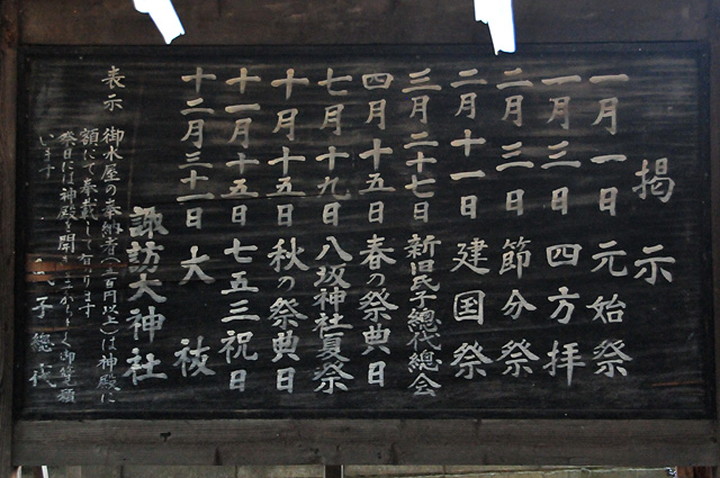 掲示
一月一日 元始祭
一月三日 四方拝
二月三日 節分祭
二月十一日 建国祭
三月二十七日 新旧氏子總代總会
四月十五日 春の祭典日
七月十九日 八坂神社夏祭
十月十五日 秋の祭典日
十一月十五日 七五三祝日
十二月三十一日 大祓
諏訪大神社
表示 御水屋の奉納者(五百円以上)は神殿に
額にて奉載して有ります
祭日には神殿を開き
います
氏子總代